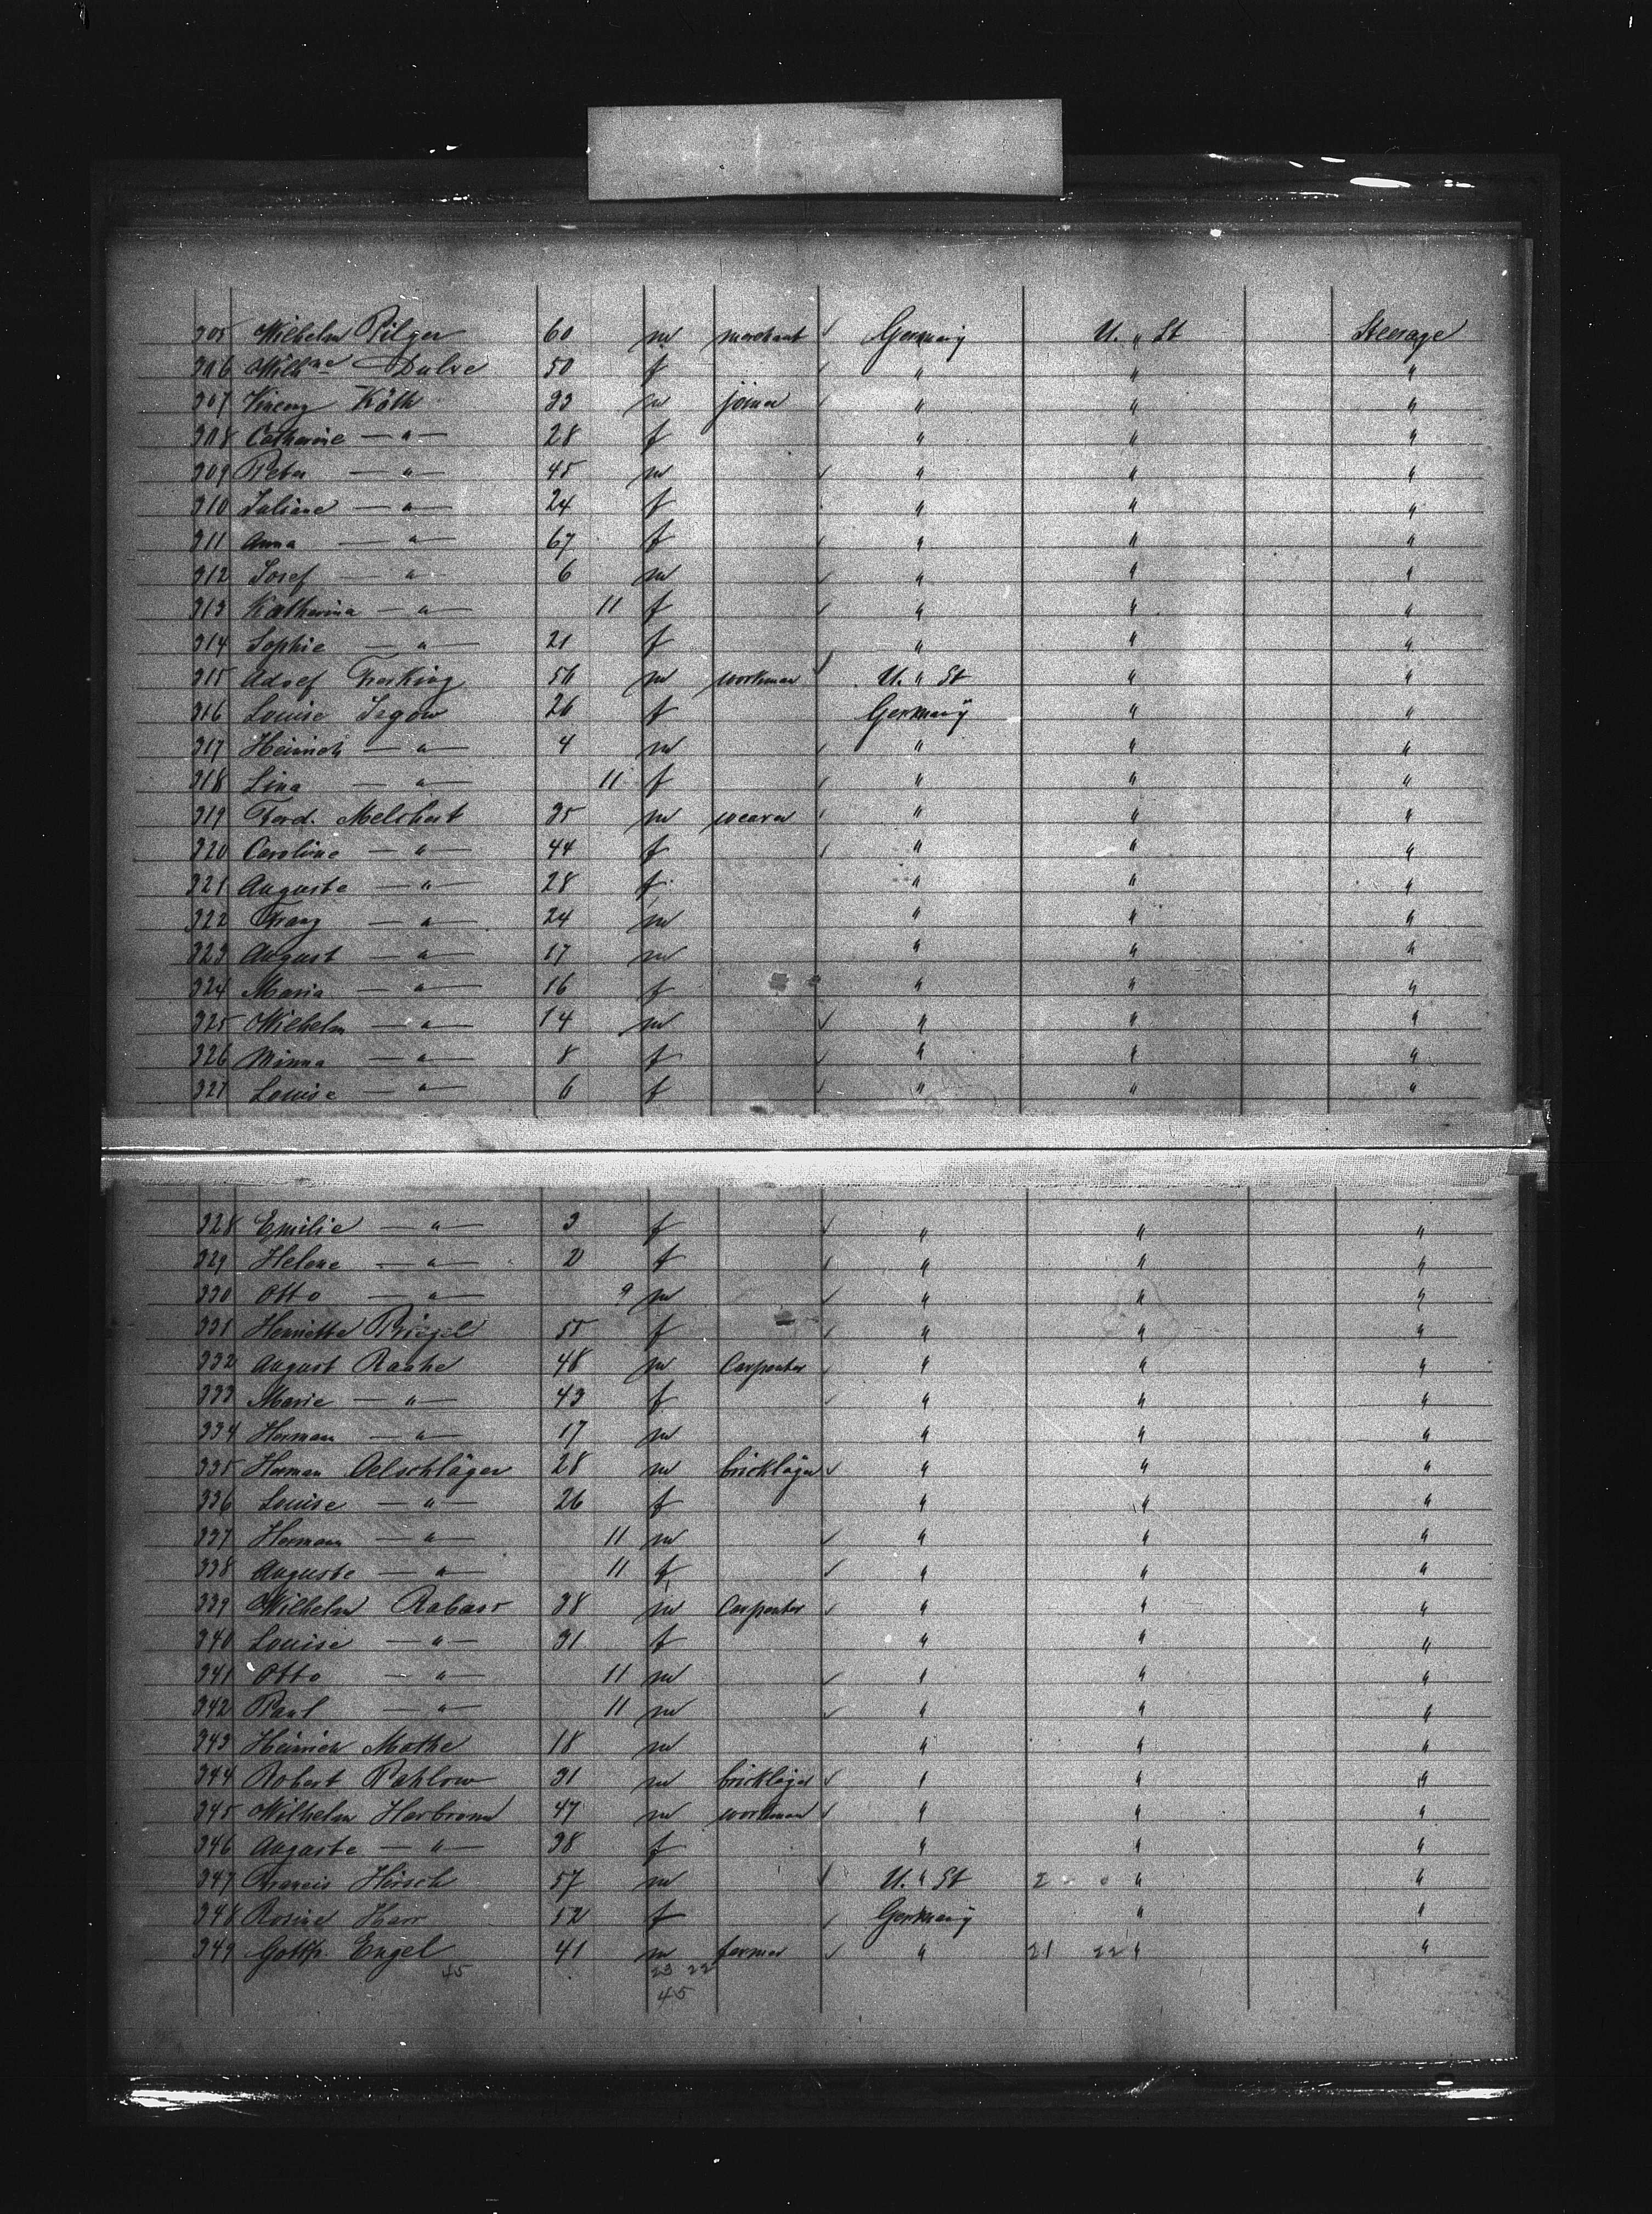 305 Wilhelm Pilger 60 m merchant ✓ Germany U. " St Steerage
306 Wilh.ne Dulve 50 f ✓ " " "
307 Vincenz Köth 33 m joiner ✓ " " "
308 Catharine — " — 28 f " " "
309 Peter — " — 45 m ✓ " " "
310 Juliane — " — 24 f " " "
311 Anna — " — 67 f ✓ " " "
312 Josef — " — 6 m ✓ " " "
313 Katharina — " — 11 f ✓ " " "
314 Sophie — " — 21 f " " "
315 Adolf 56 m workman ✓ U. " St " "
316 Louise Jagow 26 f Germany " "
317 Heinrich — " — 4 m ✓ " " "
318 Lina — " — 11 f ✓ " " "
319 Ferd. Melchert 35 m weaver ✓ " " "
320 Caroline — " — 44 f ✓ " " "
321 Auguste — " — 28 f " " "
322 Franz — " — 24 m " " "
323 August — " — 17 m " " "
324 Maria — " — 16 f " " "
325 Wilhelm — " — 14 m ✓ " " "
326 Minna — " — 8 f ✓ " " "
327 Louise — " — 6 f ✓ " " "
328 Emilie — " — 3 f ✓ " " "
329 Helene — " — 2 f ✓ " " "
330 Otto — " — 9 m ✓ " " "
331 Henriette Priegel 55 f ✓ " " "
332 August Raahe 48 m Carpenter ✓ " " "
333 Marie — " — 43 f ✓ " " "
334 Herman — " — 17 m " " "
335 Herman Oelschläger 28 m bricklayer ✓ " " "
336 Louise — " — 26 f " " "
337 Hermann — " — 11 m ✓ " " "
338 Auguste — " — 11 f ✓ " " "
339 Wilhelm Rabass 38 m Carpenter ✓ " " "
340 Louise — " — 31 f " " "
341 Otto — " — 11 m ✓ " " "
342 Paul — " — 11 m ✓ " " "
343 Heinrich Mathe 18 m " " "
344 Robert Pahlow 31 m bricklayer ✓ " " "
345 Wilhelm Harbrom 47 m workman ✓ " " "
346 Auguste — " — 38 f " " "
347 Francis Hirsch 57 m ✓ U. " St 2 " "
348 Rosine Harr 52 f ✓ Germany " "
349 Gottfr. Engel 41 m farmer ✓ " 21 22 " "
45 23 22
45